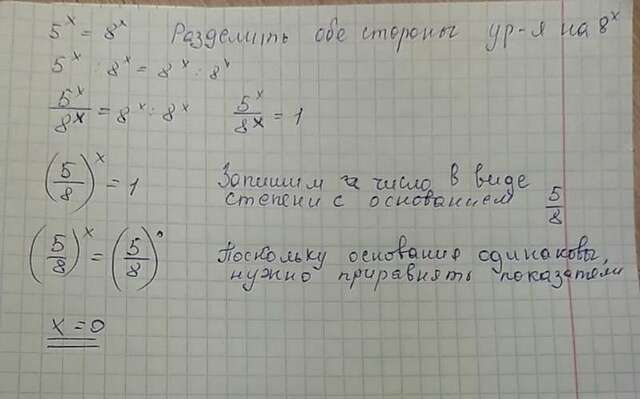 5^x = 8^x Разделить обе стороны ур-я на 8^x
5^x : 8^x = 8^x : 8^x
5^x/8^x = 8^x : 8^x 5^x/8^x = 1
(5/8)^x = 1 Запишим число в виде
степени с основанием 5/8
(5/8)^x = (5/8)^0 Поскольку основания одинаковы,
нужно приравнять показатели
x = 0